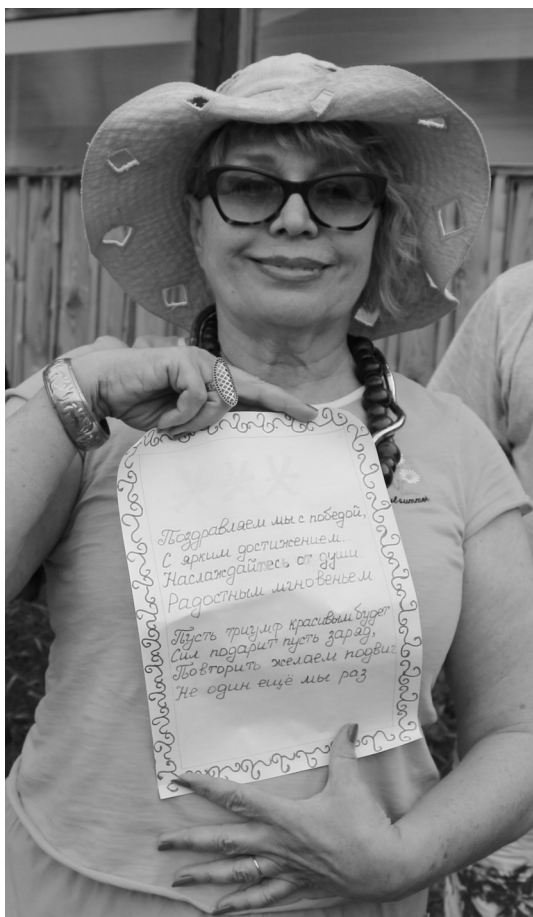 Поздравляем мы с победой,
С ярким достижением...
Наслаждайтесь от души
Радостным мгновеньем
Пусть триумф красивым будет
Сил подарит пусть заряд,
Повторить желаем подвиг
Не один ещё мы раз